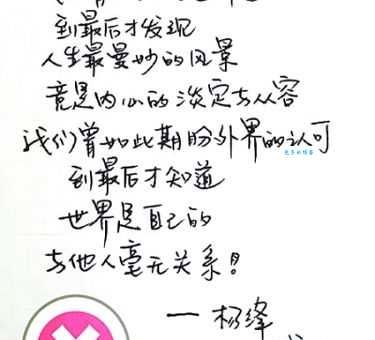 到最后才发现
人生最曼妙的风景
竟是内心的淡定与从容
我们曾如此期盼外界的认可
到最后才知道
世界是自己的
与他人毫无关系！
一 杨绛